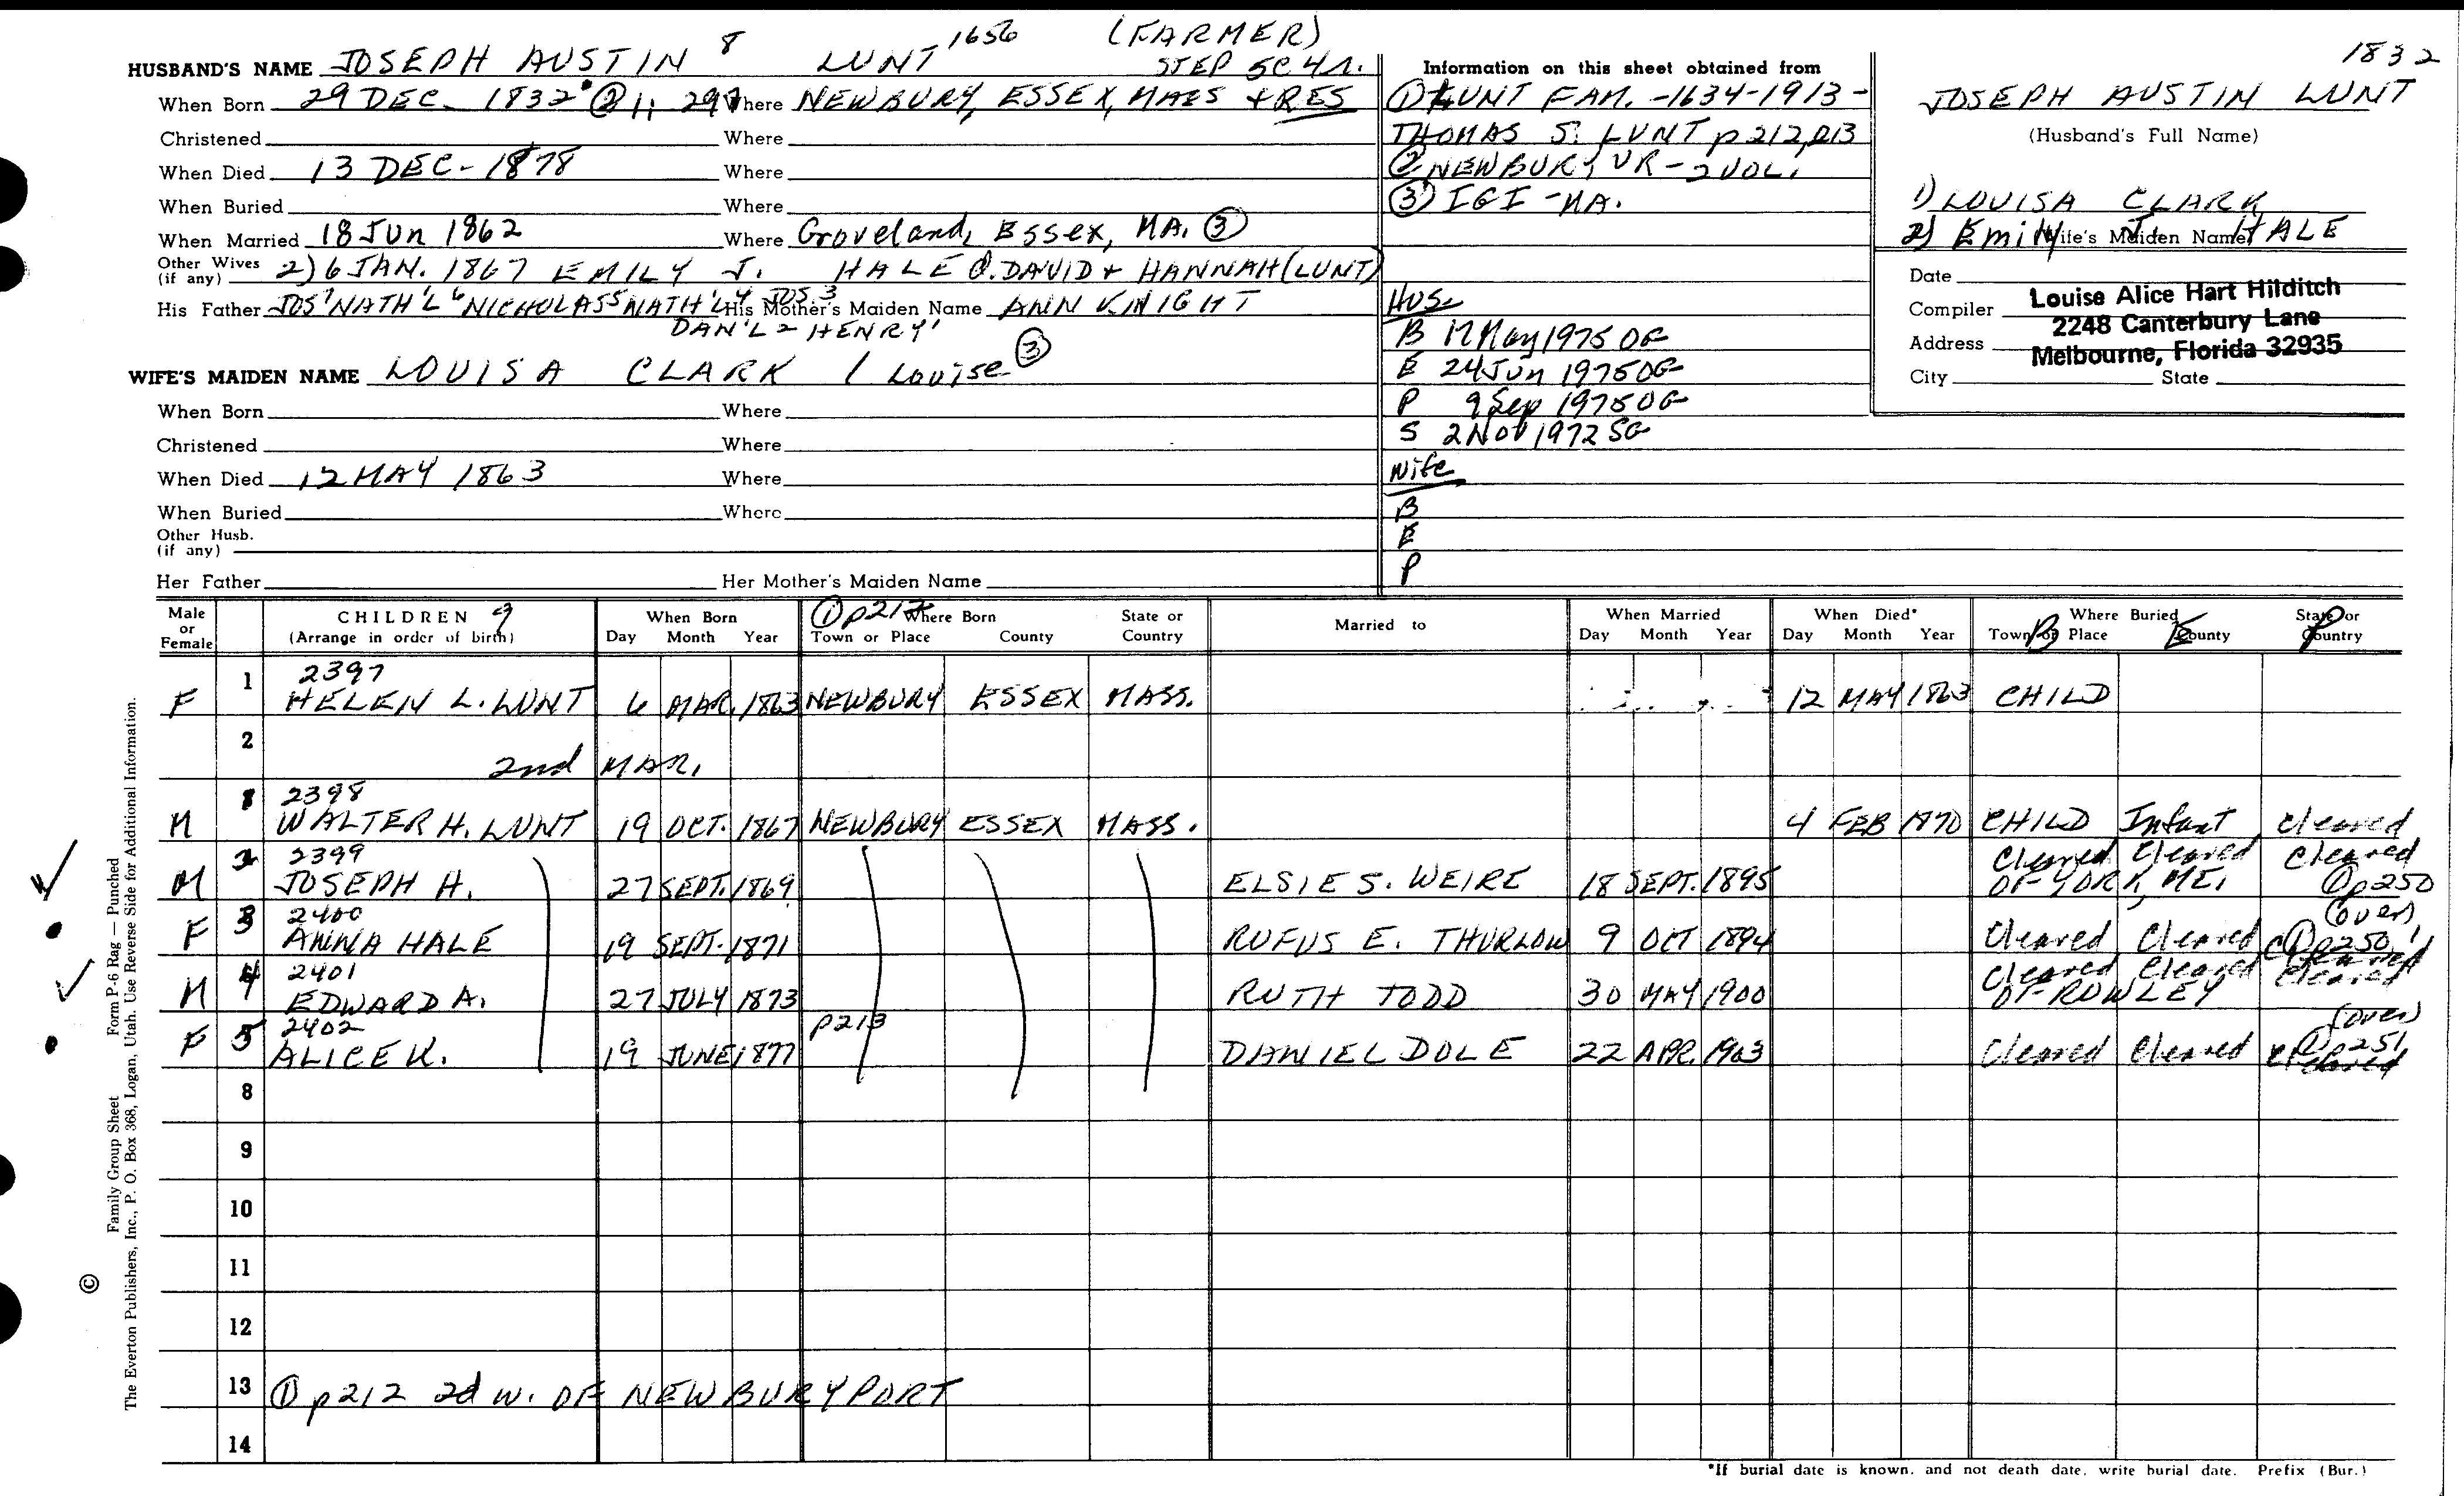 1832
HUSBAND'S NAME JOSEPH AUSTIN 8 LUNT 1656 (FARMER)
STEP
When Born 29 DEC. 1832 ② 1; 297 Where NEWBURY, ESSEX, MASS + RES
Christened Where
When Died 13 DEC - 1878 Where
When Buried Where
When Married 18 Jun 1862 Where Groveland, Essex, MA. ③
Other Wives (if any) 2) 6 JAN. 1867 EMILY J. HALE d. DAVID + HANNAH (LUNT)
His Father JOS 7 NATH'L 6 NICHOLAS 5 NATH'L 4 JOS. 3 His Mother's Maiden Name ANN KNIGHT
DAN'L 2 HENRY 1
WIFE'S MAIDEN NAME LOUISA CLARK / Louise ③
When Born Where
Christened Where
When Died 12 MAY 1863 Where
When Buried Where
Other Husb.
(if any)
Her Father Her Mother's Maiden Name
Information on this sheet obtained from
① LUNT FAM. - 1634-1913 -
THOMAS S. LUNT p 212, 213
② NEWBURY VR - 2 VOL.
③ IGI - MA.
Hus.
B 17 May 1975 OG
E 24 Jun 1975 OG
P 9 Sep 1975 OG
S 2 Nov 1972 SG
Wife
B
E
P
JOSEPH AUSTIN LUNT
(Husband's Full Name)
1) LOUISA CLARK
2) Emily J. HALE
Wife's Maiden Name
Date
Compiler Louise Alice Hart Hilditch
Address 2248 Canterbury Lane
Melbourne, Florida 32935
City State
Male or Female CHILDREN (Arrange in order of birth) When Born Day Month Year ① p212 Where Born Town or Place County State or Country Married to When Married Day Month Year When Died* Day Month Year Where Buried Town or Place County State or Country B E P
2397
F 1 HELEN L. LUNT 6 MAR. 1863 NEWBURY ESSEX MASS. 12 MAY 1863 CHILD
2
2nd MAR.
2398
M 1 WALTER H. LUNT 19 OCT. 1867 NEWBURY ESSEX MASS. 4 FEB 1870 CHILD Infant cleared
2399 Cleared Cleared Cleared
M 2 JOSEPH H. 27 SEPT. 1869 ELSIE S. WEIRE 18 SEPT. 1895 OF YORK, ME. ① p250
(over)
2400
F 3 ANNA HALE 19 SEPT. 1871 RUFUS E. THURLOW 9 OCT 1894 Cleared Cleared ① p250
2401 Cleared Cleared Cleared
M 4 EDWARD A. 27 JULY 1873 RUTH TODD 30 MAY 1900 OF ROWLEY
(over)
2402 p213
F 5 ALICE K. 19 JUNE 1877 DANIEL DOLE 22 APR. 1903 Cleared Cleared ① p251 Cleared
8
9
10
11
12
13 ① p212 2d w. OF NEWBURYPORT
14
*If burial date is known, and not death date, write burial date. Prefix (Bur.)
© Family Group Sheet Form P-6 Rag — Punched
The Everton Publishers, Inc., P. O. Box 368, Logan, Utah. Use Reverse Side for Additional Information.